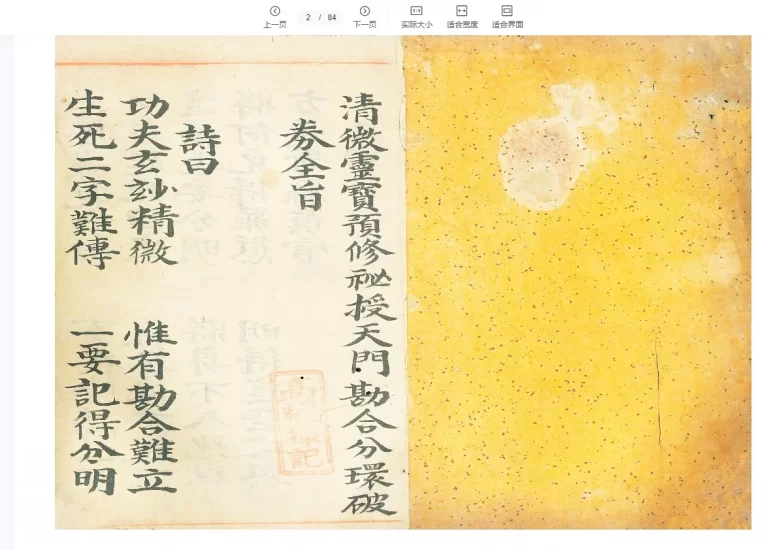 上一页
2 / 84
下一页
实际大小
适合宽度
适合界面
清微靈寶預修祕授天門勘合分環破
券全旨
詩曰
功夫玄玅精微 惟有勘合難立
生死二字難傳 一要記得分明